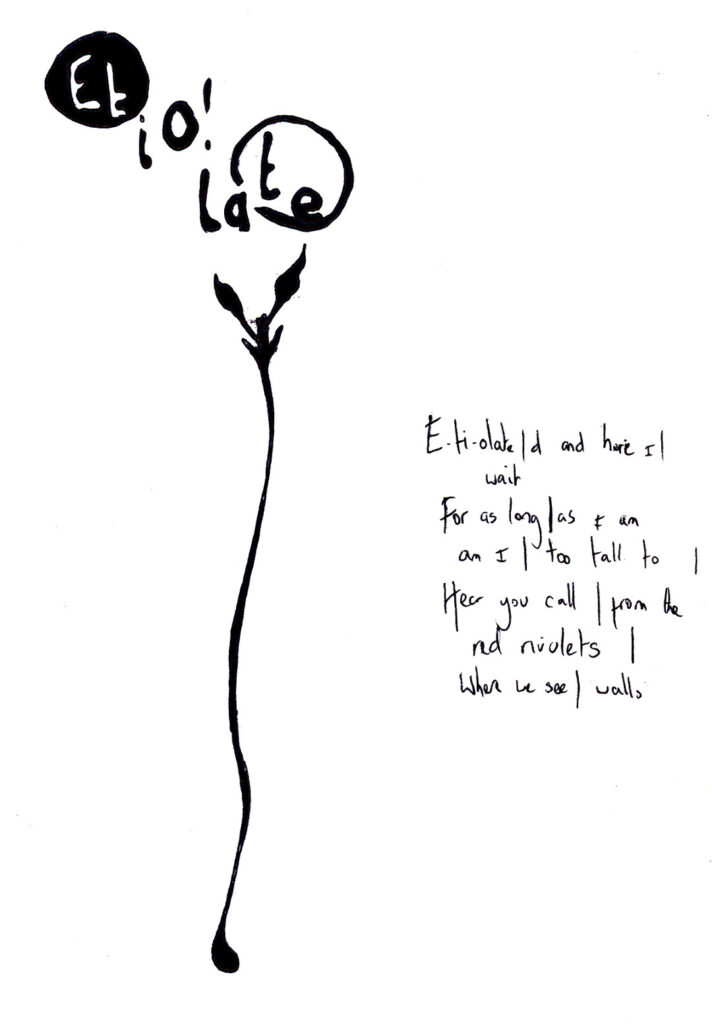 Et
iO!
late
E-ti-olate/d and here I/
wait
For as long/as I am
am I / too tall to /
Hear you call / from the
red rivulets /
When we see / walls